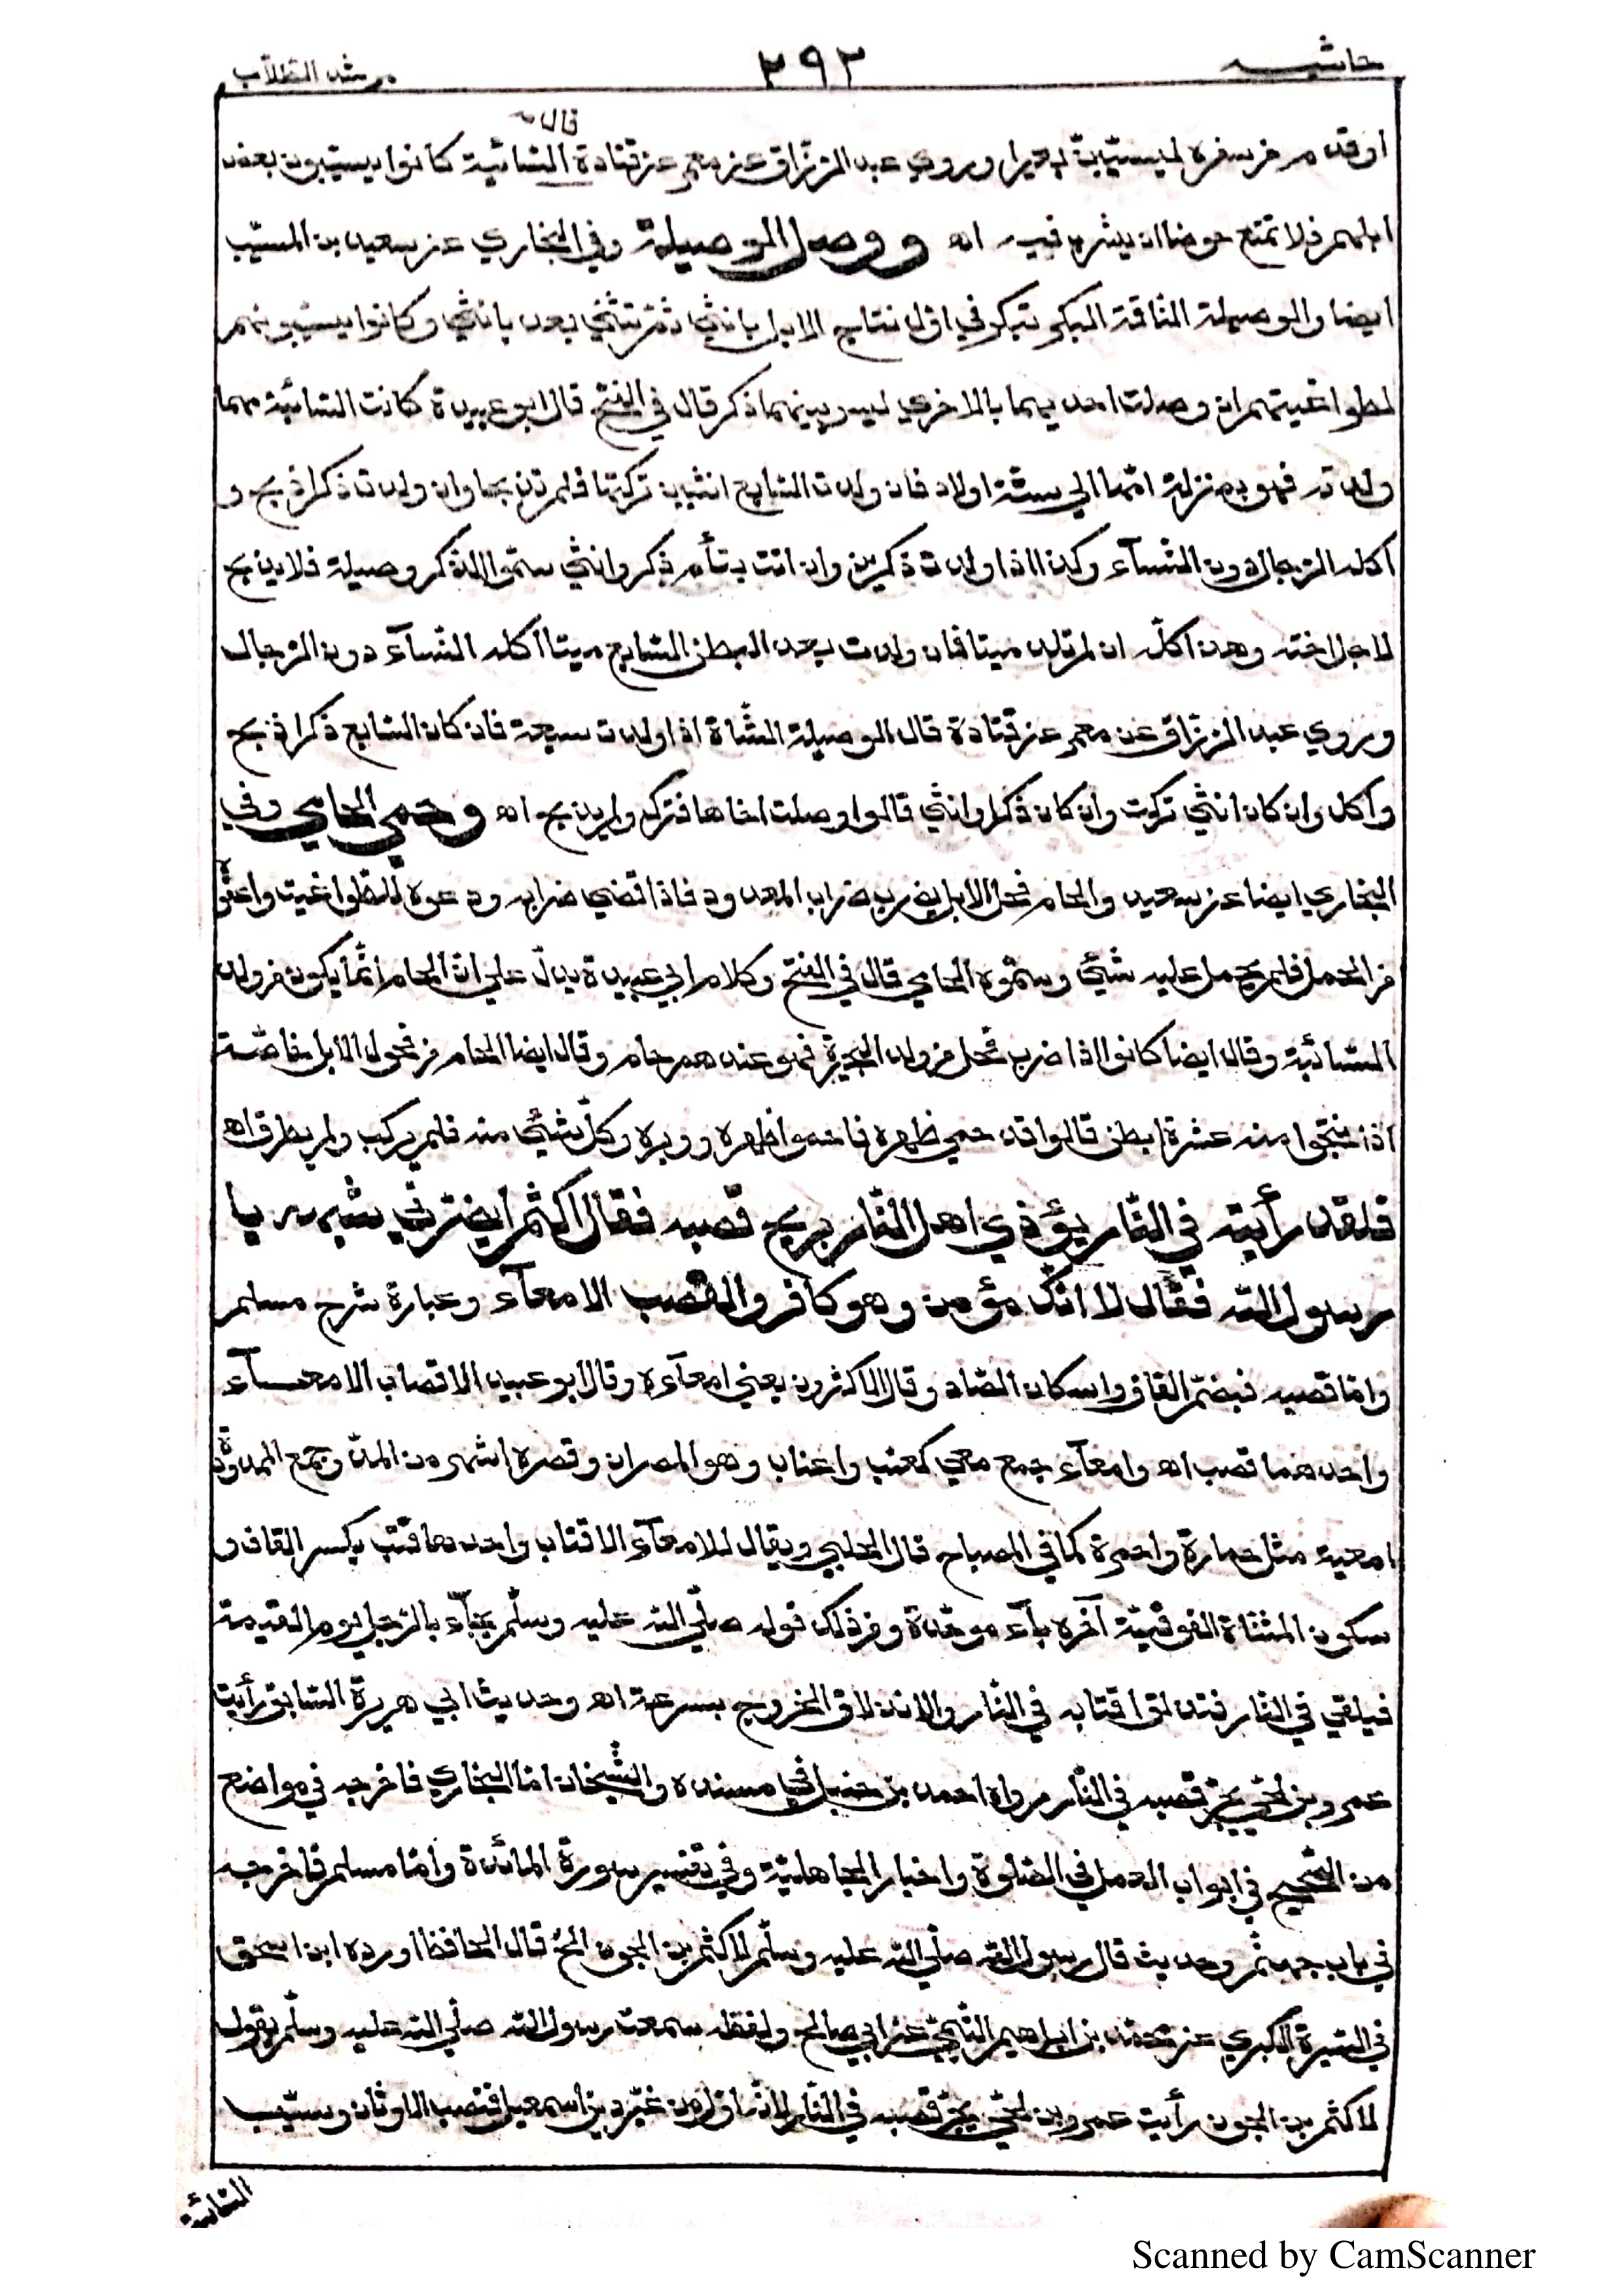 حاشيه ٢٩٢ مرشد الطلاب
قال
او قدم من سفره ليسيّبنّ بعيرا وروي عبد الرزّاق عن معمر عن قتادة السّائبة كانوا يسيّبون بعض
ابلهم فلا تمنع حوضا ان يشرب فيه اه ووصل الوصيلة وفي البخاري عن سعيد بن المسيّب
ايضا والوصيلة النّاقة البكر تبكر في اوّل نتاج الابل بانثي ثمّ تثنّي بعد بانثي وكانوا يسيّبونهم
لطواغيتهم ان وصلت احديهما بالاخري ليس بينهما ذكر قال في الفتح قال ابو عبيدة كانت السّائبة مهما
ولدته فهو بمنزلة امّها الي ستّة اولاد فان ولدت السّابع انثيين تركتا فلم تذبحا وان ولدت ذكرا ذبح و
اكله الرّجال دون النّسآء وكذا اذا ولدت ذكرين وان اتت بتأم ذكر وانثي سمّوا الذّكر وصيلة فلا يذبح
لاجل اخته وهذا كلّه ان لم تلد ميتا فان ولدت بعد البطن السّابع ميتا اكله النّسآء دون الرّجال
وروي عبد الرزّاق عن معمر عن قتادة قال الوصيلة الشّاة اذا ولدت سبعة فان كان السّابع ذكرا ذبح
وأكل وان كان انثي تركت وان كان ذكرا وانثي قالوا وصلت اخاها فترك ولم يذبح اه وحمي الحامي وفي
البخاري ايضا عن سعيد والحام فحل الابل يضرب ضراب المعدود فاذا قضي ضرابه ودعوه للطّواغيت واعفوه
من الحمل فلم يحمل عليه شئي وسمّوه الحامي قال في الفتح وكلام ابي عبيدة يدلّ علي انّ الحام انّما يكون من ولد
السّائبة وقال ايضا كانوا اذا ضرب فحل من ولد البحيرة فهو عندهم حام وقال ايضا الحام من فحول الابل خاصّة
اذا نتجوا منه عشرة ابطن قالوا قد حمي ظهره فاحموا ظهره ووبره وكلّ شئي منه فلم يركب ولم يطرق اه
فلقد رأيته في النّار يؤذي اهل النّار بريح قصبه فقال اكثم ايضرّني شبهه يا
رسول الله فقال لا انّك مؤمن وهو كافر والقصب الامعآء وعبارة شرح مسلم
وامّا قصبه فبضمّ القاف واسكان الصّاد وقال الاكثرون يعني امعآءه وقال ابو عبيد الاقصاب الامعـــآء
واحدهما قصب اه وامعآء جمع معي كعنب واعناب وهو المصران وقصره اشهر من المدّ وجمع الممدودة
امعية مثل حمارة واحمرة كما في المصباح قال الحلبي ويقال للامعآء الاقتاب واحدها قتب بكسر القاف و
سكون المثنّاة الفوقيّة آخره بآء موحّدة ومن ذلك قوله صلّي الله عليه وسلّم يجآء بالرّجل يوم القيمة
فيلقي في النّار فتندلق اقتابه في النّار والاندلاق الخروج بسرعة اه وحديث ابي هريرة السّابق رأيت
عمرو بن لحيّ يجرّ قصبه في النّار رواه احمد بن حنبل في مسنده والشّيخان امّا البخاري فاخرجه في مواضع
من الصّحيح في ابواب العمل في الصّلوة واخبار الجاهليّة وفي تفسير سورة المائدة وامّا مسلم فاخرجه
في باب جهنّم وحديث قال رسول الله صلّي الله عليه وسلّم لاكثم بن الجون الخ قال الحافظ اورده ابن اسحق
في السّيرة الكبري عن محمّد بن ابراهيم التّيمي عن ابي صالح ولفظه سمعت رسول الله صلّي الله عليه وسلّم يقول
لاكثم بن الجون رأيت عمرو بن لحيّ يجرّ قصبه في النّار لانّه اوّل من غيّر دين اسمعيل فنصب الاوثان وسيّب
السّائبة
Scanned by CamScanner